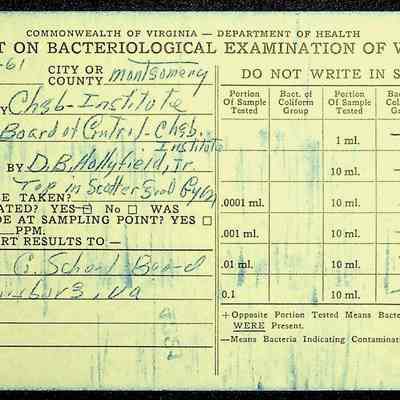 COMMONWEALTH OF VIRGINIA — DEPARTMENT OF HEALTH
T ON BACTERIOLOGICAL EXAMINATION OF W
-61 CITY OR COUNTY Montgomery
DO NOT WRITE IN S
Y Chsb-Institute
Board of Control-Chsb. Institute
BY D.B. Hollyfield, Jr.
E TAKEN? Tap in
ATED? YES □ No □ WAS
DE AT SAMPLING POINT? YES □
PPM.
RT RESULTS TO —
C. School Board
nsburg, Va
Portion Of Sample Tested Bact. of Coliform Group Portion Of Sample Tested Bac Co G
1 ml. —
10 ml. —
.0001 ml. 10 ml. —
.001 ml. 10 ml. —
.01 ml. 10 ml. —
0.1 10 ml.
+Opposite Portion Tested Means Bacte
WERE Present.
—Means Bacteria Indicating Contaminat